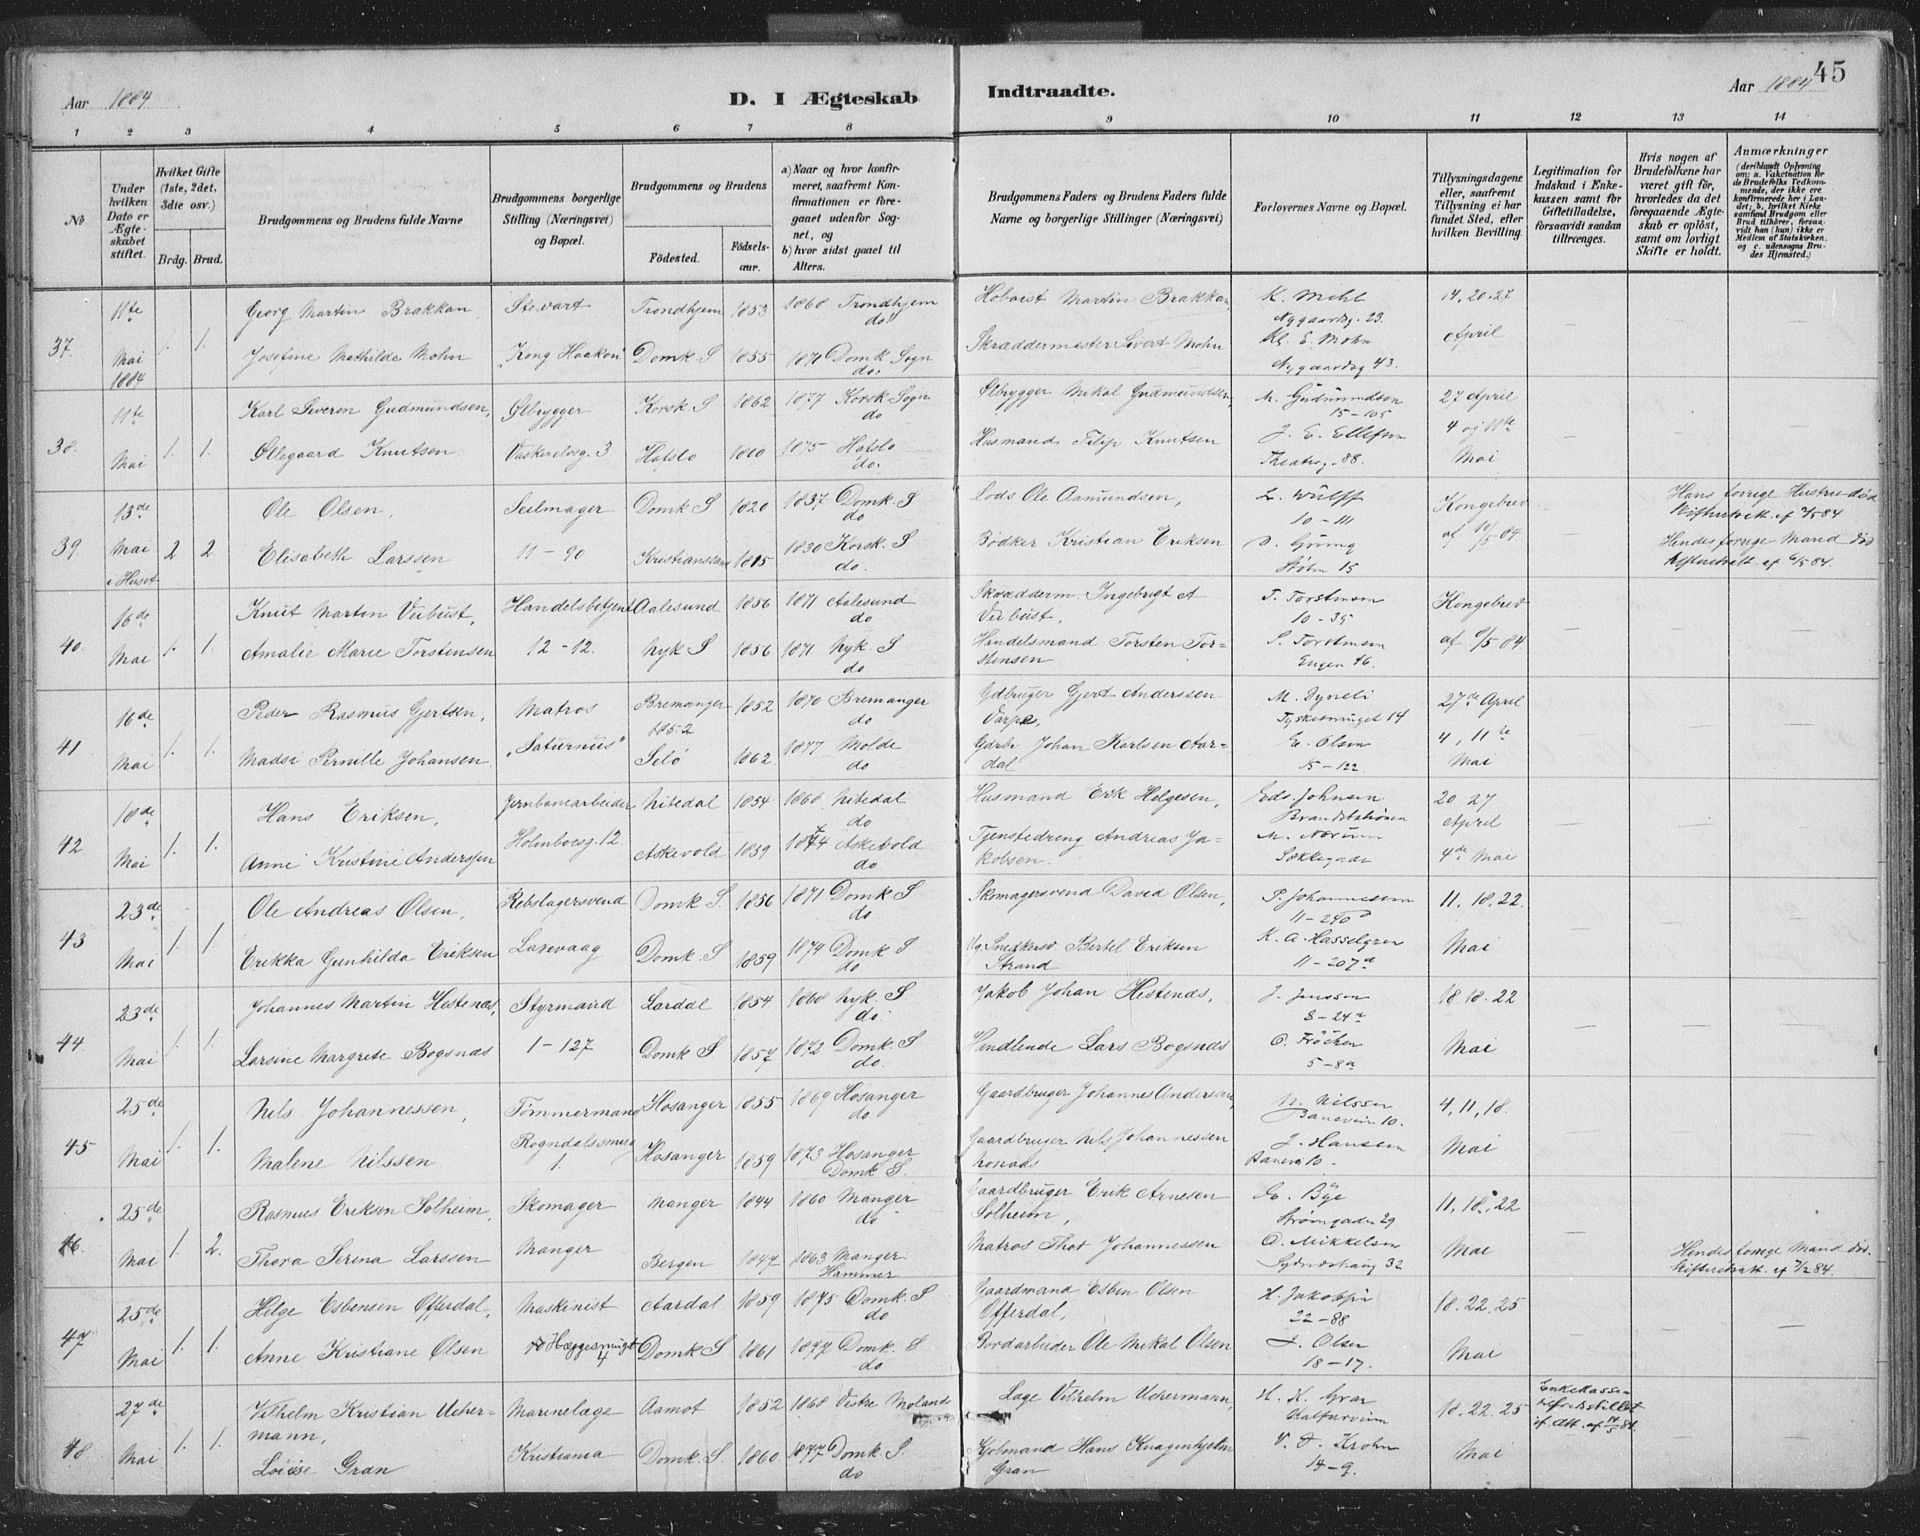 45
Aar 1884
D. I Ægteskab
Indtraadte.
Aar 1884
1 2 3 4 5 6 7 8 9 10 11 12 13 14
No
Under hvilken Dato er Ægteskabet stiftet.
Hvilket Gifte (1ste, 2det, 3dte osv.)
Brdg. Brud.
Brudgommens og Brudens fulde Navne
Brudgommens borgerlige Stilling (Næringsvei) og Bopæl.
Brudgommens og Brudens
Födested. Födselsaar.
a) Naar og hvor konfirmeret, saafremt Konfirmationen er foregaaet udenfor Sognet, og
b) hvor sidst gaaet til Alters.
Brudgommens Faders og Brudens Faders fulde Navne og borgerlige Stillinger (Næringsvei)
Forlovernes Navne og Bopæl.
Tillysningsdagene eller, saafremt Tillysning ei har fundet Sted, efter hvilken Bevilling.
Legitimation for Indskud i Enkekassen samt for Giftetilladelse, forsaavidt saadan tiltrænges.
Hvis nogen af Brudefolkene har været gift før, hvorledes da det foregaaende Ægteskab er opløst, samt om lovligt Skifte er holdt.
Anmærkninger
37. 11te Mai 1884 1.
Georg Martin Brakkan Stevart Trondhjem 1853 1868 Trondhjem do Hoboist Martin Brakkan K. Mehl Nygaardsg. 23. 14. 20. 27
Josefine Mathilde Mohn "Kong Haakon" Domk. S 1855 1870 Domk Sogn do. Skræddermester Sivert Mohn Kl. E. Mohn Nygaardsg 43. April
38. 11te Mai 1. 1.
Karl Severin Gudmundsen, Ølbrygger Korsk. S 1862 1877 Korsk Sogn do Ølbrygger Mikal Gudmundsen, M. Gudmundsen 15-105 27 April
Øllegaard Knutsen Vaskerelvsg. 3 Hafslo 1860 1875 Hafslo do. Husmand Filip Knutsen J. E. Ellefsen Theatersg. 88. 4 og 11te Mai
39 13de Mai i Huset 2 2
Ole Olsen, Seilmager Domk S 1820 1837 Domk. S do Lods Ole Aamundsen, L. Wulff 10-111 Kongebrev Hans forrige Hustru død
Elisabeth Larssen 11-90 Kristianssund 1815 1830 Korsk. S do. Bødker Kristian Eriksen Støhn 15 af 10/5 84 Hendes forrige Mand død Skifteretsatt. af 6/5 84.
40 16de Mai 1. 1.
Knut Martin Verbust, Handelsbetjent Aalesund 1856 1871 Aalesund do Skrædderm. Ingebrigt A Verbust, T. Torstensen 10-35 Kongebrev
Amalie Marie Torstensen 12-12. Nyk S 1856 1871 Nyk S do Handelsmand Torsten Torstensen S. Torstensen Engen 46. af 9/5 84
41 16de Mai 1. 1.
Peder Rasmus Gjertsen, Matros Bremanger 1852 1870 Bremanger do Gdbruger Gjert Anderssen Varpe, M. Dyneli Tyskesmuget 14 27de April
1852
Madsi Pernille Johansen "Saturnus" Selö 1862 1877 Molde do Gdrbr. Johan Karlsen Aardal E. Olsen 15-122 4, 11te Mai
42 18de Mai 1. 1.
Hans Eriksen, Jernbanearbeider Nitedal 1854 1868 Nitedal do Husmand Erik Helgesen, Eds. Johnsen Brandstationen 20 27 April
Anne Kristine Anderssen Holmboesg. 12 Askevold 1859 1874 Askevold do Tjenstedreng Andreas Jakobsen. M. Nævum Sækkegaden 4de Mai
43 23de Mai 1. 1.
Ole Andreas Olsen, Rebslagersvend Domk S. 1856 1871 Domk S do Skomagersvend David Olsen, P. Johannessen 11-290 11, 18, 22.
Erikka Gunhilda Eriksen Laxevaag Domk. S 1859 1874 Domk S do Snedkersv Bertel Eriksen Strand K. A. Hasselgren 11-207a Mai
44. 23de Mai 1. 1.
Johannes Martin Hestenæs, Styrmand Lardal 1854 1868 Nyk. S do. Jakob Johan Hestenæs, J. Jenssen 8-24a 18. 18. 22
Larsine Margrete Bogsnæs 1-127 Domk S 1857 1872 Domk. S do. Vendlende Lars Bogsnæs O. Frøchen 5-8a Mai
45 25de Mai 1. 1.
Nils Johannessen, Tømmermand Hosanger 1855 1869 Hosanger do Gaardbruger Johannes Anderssen, N. Nilssen Baneveien 10. 4, 11, 18.
Malene Nilssen Rogndalssmug 1. Hosanger 1859 1873 Hosanger Domk S. Gaardbruger Nils Johannessen Lonaas J. Hansen Banev. 10. Mai
46. 25de Mai 1. 2.
Rasmus Eriksen Solheim, Skomager Manger 1844 1860 Manger do Gaardbruger Erik Arnesen Solheim, E. Bye Strømgaden 29 11, 18, 22
Thora Serina Larssen Manger Bergen 1847 1863 Manger Hammer Matros Thor Johannessen O. Mikkelsen Sydneshaug 32 Mai Hendes forrige Mand død. Skifteretsatt. af 7/2 84.
47 25de Mai 1. 1.
Helge Esbensen Offerdal, Maskinist Aardal 1859 1875 Domk. S do Gaardmand Esben Olsen Offerdal, H. Jakobsen 22-88 18. 22. 25
Anne Kristiane Olsen Hæggesmuget 4 Domk S 1861 1877 Domk. S do Bordarbeider Ole Mikal Olsen J. Olsen 18-17. Mai
48. 27de Mai 1. 1.
Vilhelm Kristian Uchermann, Marinelæge Aamot 1852 1868 Vestre Moland Læge Vilhelm Uchermann, H. K. Gran Kalfarveien 18. 22. 25 Enkekasse- af 14/5 84
Louise Gran Kristiania Domk. S. 1860 1877 Domk S. do Kjøbmand Hans Knagenhjelm Gran V. D. Krohn 14-9. Mai